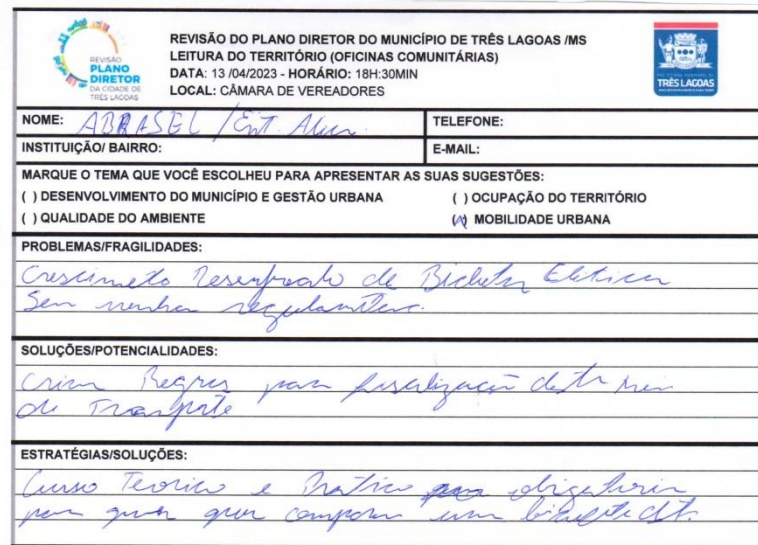 REVISÃO
PLANO
DIRETOR
DA CIDADE DE
TRÊS LAGOAS
REVISÃO DO PLANO DIRETOR DO MUNICÍPIO DE TRÊS LAGOAS /MS
LEITURA DO TERRITÓRIO (OFICINAS COMUNITÁRIAS)
DATA: 13 /04/2023 - HORÁRIO: 18H:30MIN
LOCAL: CÂMARA DE VEREADORES
TRÊS LAGOAS
NOME: ABRASEL / Ent.
TELEFONE:
INSTITUIÇÃO/ BAIRRO:
E-MAIL:
MARQUE O TEMA QUE VOCÊ ESCOLHEU PARA APRESENTAR AS SUAS SUGESTÕES:
( ) DESENVOLVIMENTO DO MUNICÍPIO E GESTÃO URBANA
( ) OCUPAÇÃO DO TERRITÓRIO
( ) QUALIDADE DO AMBIENTE
(X) MOBILIDADE URBANA
PROBLEMAS/FRAGILIDADES:
Crescimeto Desenfreado de Bicicletas Eletrica
Sem nenhuma
SOLUÇÕES/POTENCIALIDADES:
Criar Regras para fiscalização deste meio
de Transporte
ESTRATÉGIAS/SOLUÇÕES:
Curso Teorico e Pratico obrigatorio
para quem quer comprar uma